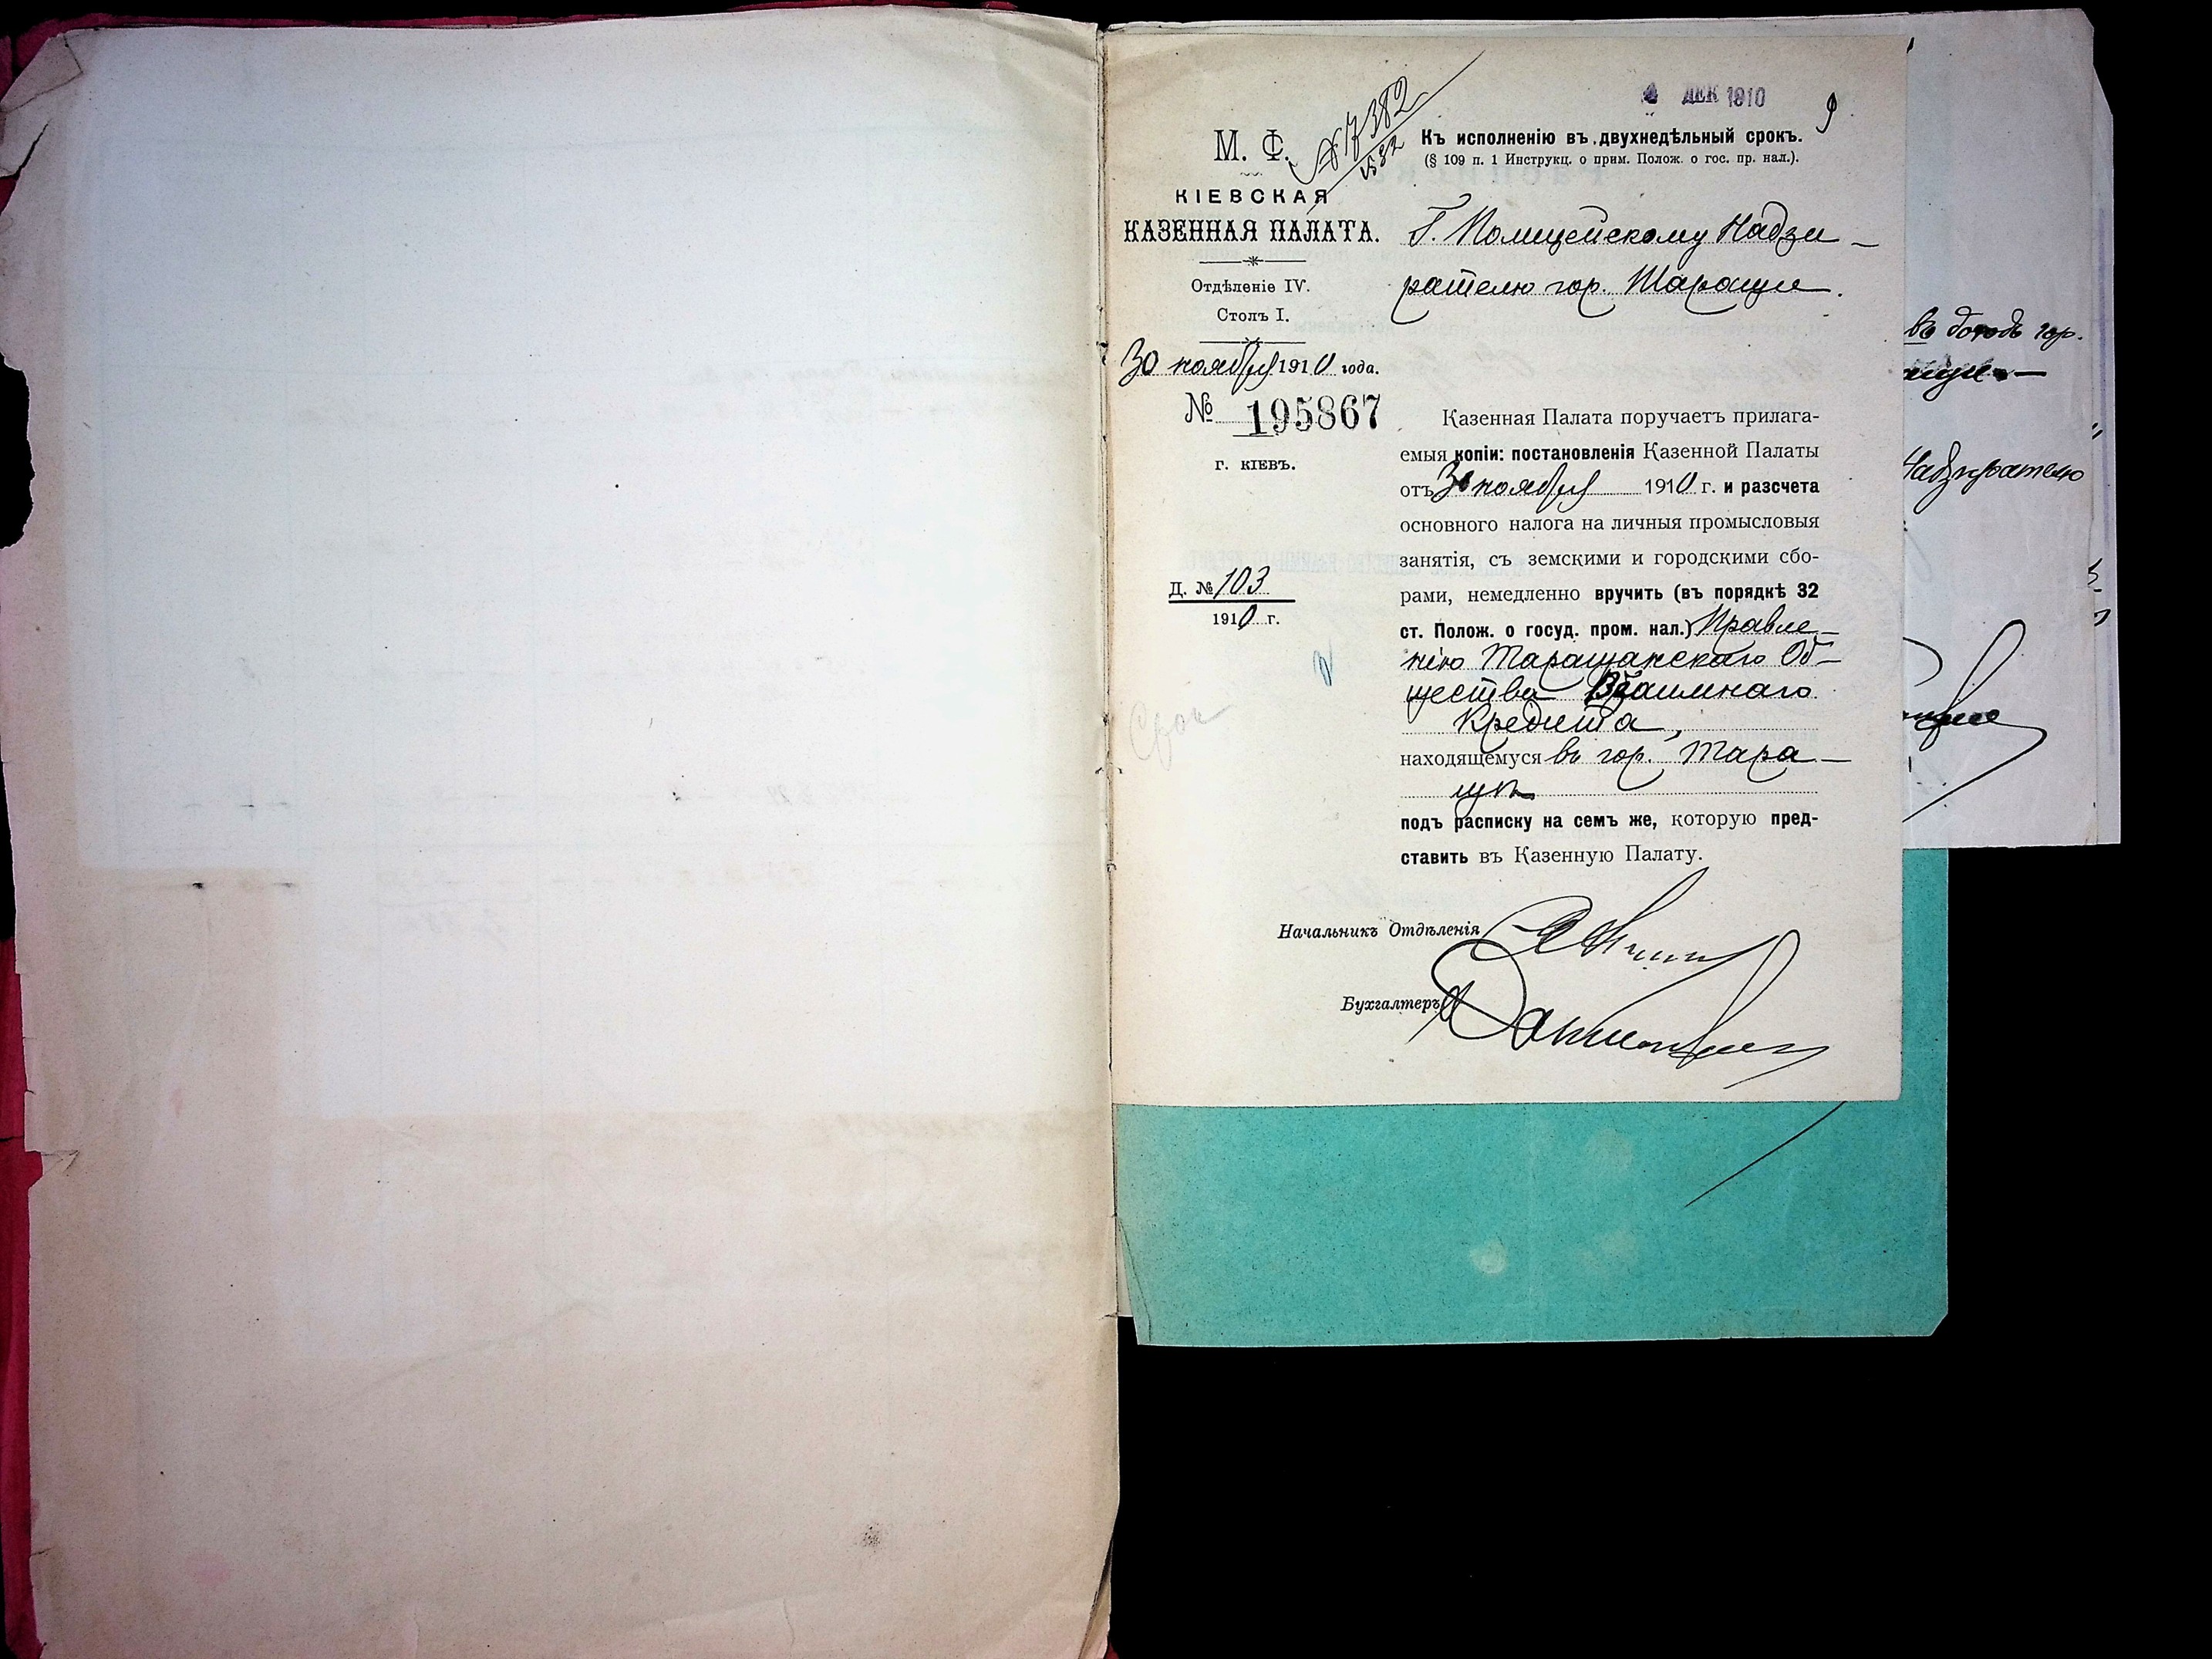 4 ДЕК 1910
9
№ 17382
М. Ф.
КІЕВСКАЯ
КАЗЕННАЯ ПАЛАТА.
Отдѣленіе IV.
Столъ I.
30 ноября 1910 года.
№ 195867
г. КІЕВЪ.
Д. № 103
1910 г.
Срок
Къ исполненію въ двухнедѣльный срокъ.
(§ 109 п. 1 Инструкц. о прим. Полож. о гос. пр. нал.).
Г. Полицейскому Надзи-
рателю гор. Таращи.
Казенная Палата поручаетъ прилага-
емыя копіи: постановленія Казенной Палаты
отъ 30 ноября 1910 г. и разсчета
основного налога на личныя промысловыя
занятія, съ земскими и городскими сбо-
рами, немедленно вручить (въ порядкѣ 32
ст. Полож. о госуд. пром. нал.) Правле-
нію Таращанскаго Об-
щества Взаимнаго
Кредита,
находящемуся въ гор. Тара-
щѣ
подъ расписку на семъ же, которую пред-
ставить въ Казенную Палату.
Начальникъ Отдѣленія
Бухгалтеръ
въ гор.
Надзирателю